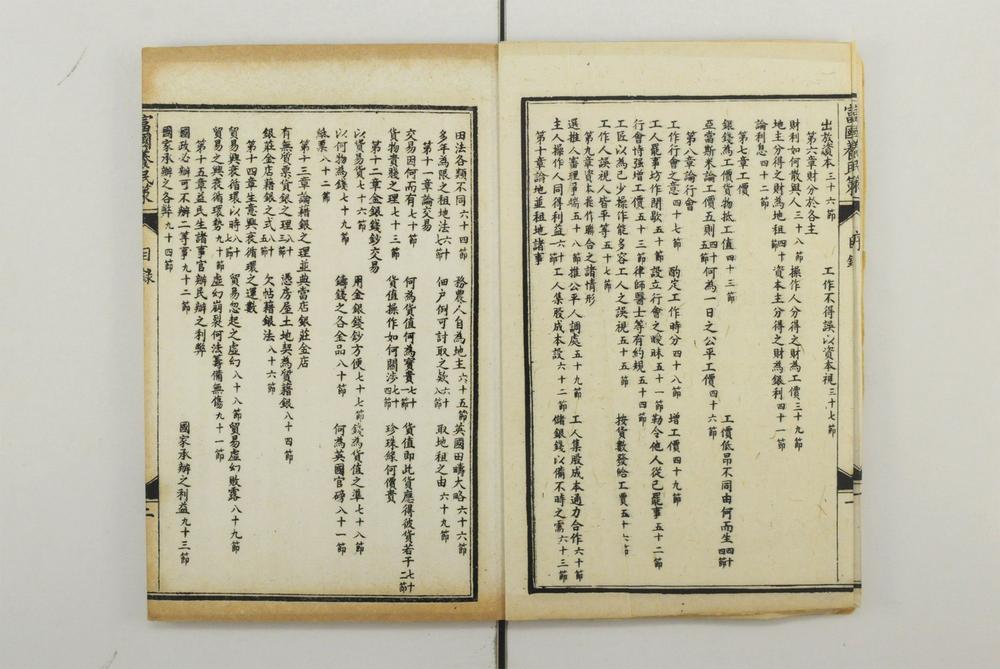 富國養民策
目錄
一
出放資本三十六節 工作不得誤以資本視三十七節
第六章財分於各主
財利如何散與人三十八節 操作人分得之財為工價三十九節
地主分得之財為地租四十節 資本主分得之財為銀利四十一節
論利息四十二節
第七章工價
銀錢為工價貨物抵工值四十三節 工價低昂不同由何而生四十四節
亞當斯米論工價五則四十五節 何為一日之公平工價四十六節
第八章論行會
工作行會之意四十七節 酌定工作時分四十八節 增工價四十九節
工人罷事坊作閉歇五十節 設立行會之曖昧五十一節 勒令他人從己罷事五十二節
行會恃强增工價五十三節 律師醫士等有約規五十四節
工匠以為己少操作能多容工人之誤視五十五節 按貨數發給工賈五十六節
工作人誤視人皆平等五十七節
第九章資本操作聯合之諸情形
選推人審理爭端五十八節 推公平人調處五十九節 工人集股成本通力合作六十節
主人操作人同得利益六十一節 工人集股成本設六十二節 儲銀錢以備不時之需六十三節
第十章論地並租地諸事
田法各類不同六十四節 務農人自為地主六十五節 英國田疇大略六十六節
多年為限之租地法六十七節 佃戶例可討取之欵六十八節 取地租之由六十九節
第十一章論交易
交易因何而有七十節 何為貨值何為寶貴七十一節 貨值即此貨應得彼貨若干七十二節
貨物貴賤之理七十三節 貨值操作如何關涉七十四節 珍珠緣何價貴
第十二章金銀錢鈔交易
以貨易貨七十六節 用金銀錢鈔方便七十七節 錢為貨值之準七十八節
以何物為錢七十九節 鑄錢之各金品八十節 何為英國官磅八十一節
紙票八十二節
第十三章論藉銀之理並典當店銀莊金店
有無質票貸銀之理八十三節 憑房屋土地契為質藉銀八十四節
銀莊金店藉銀之式八十五節 欠帖藉銀法八十六節
第十四章生意興衰循環之運數
貿易興衰循環以時八十七節 貿易忽起之虛幻八十八節 貿易虛幻敗露八十九節
貿易之興衰循環勢九十節 虛幻崩裂何法籌備無傷九十一節
第十五章益民生諸事官辦民辦之利弊
國政必辦可不辦二等事九十二節 國家承辦之利益九十三節
國家承辦之各弊九十四節
富國養民策
目錄
二